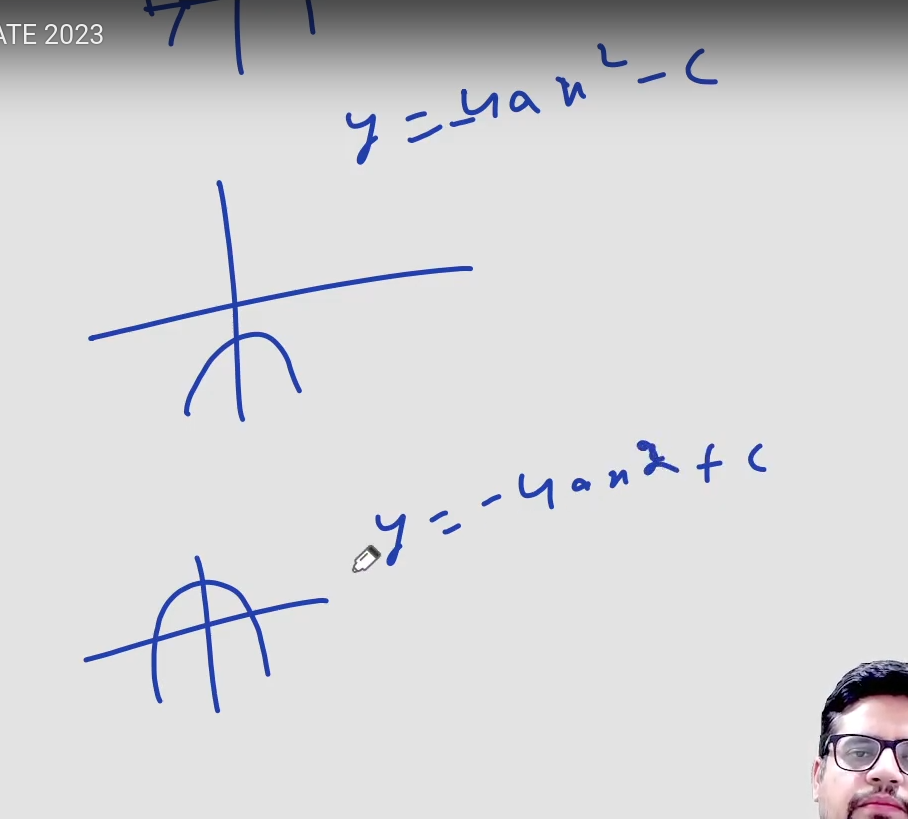 ATE 2023
y = -4ax² - c
y = -4ax² + c